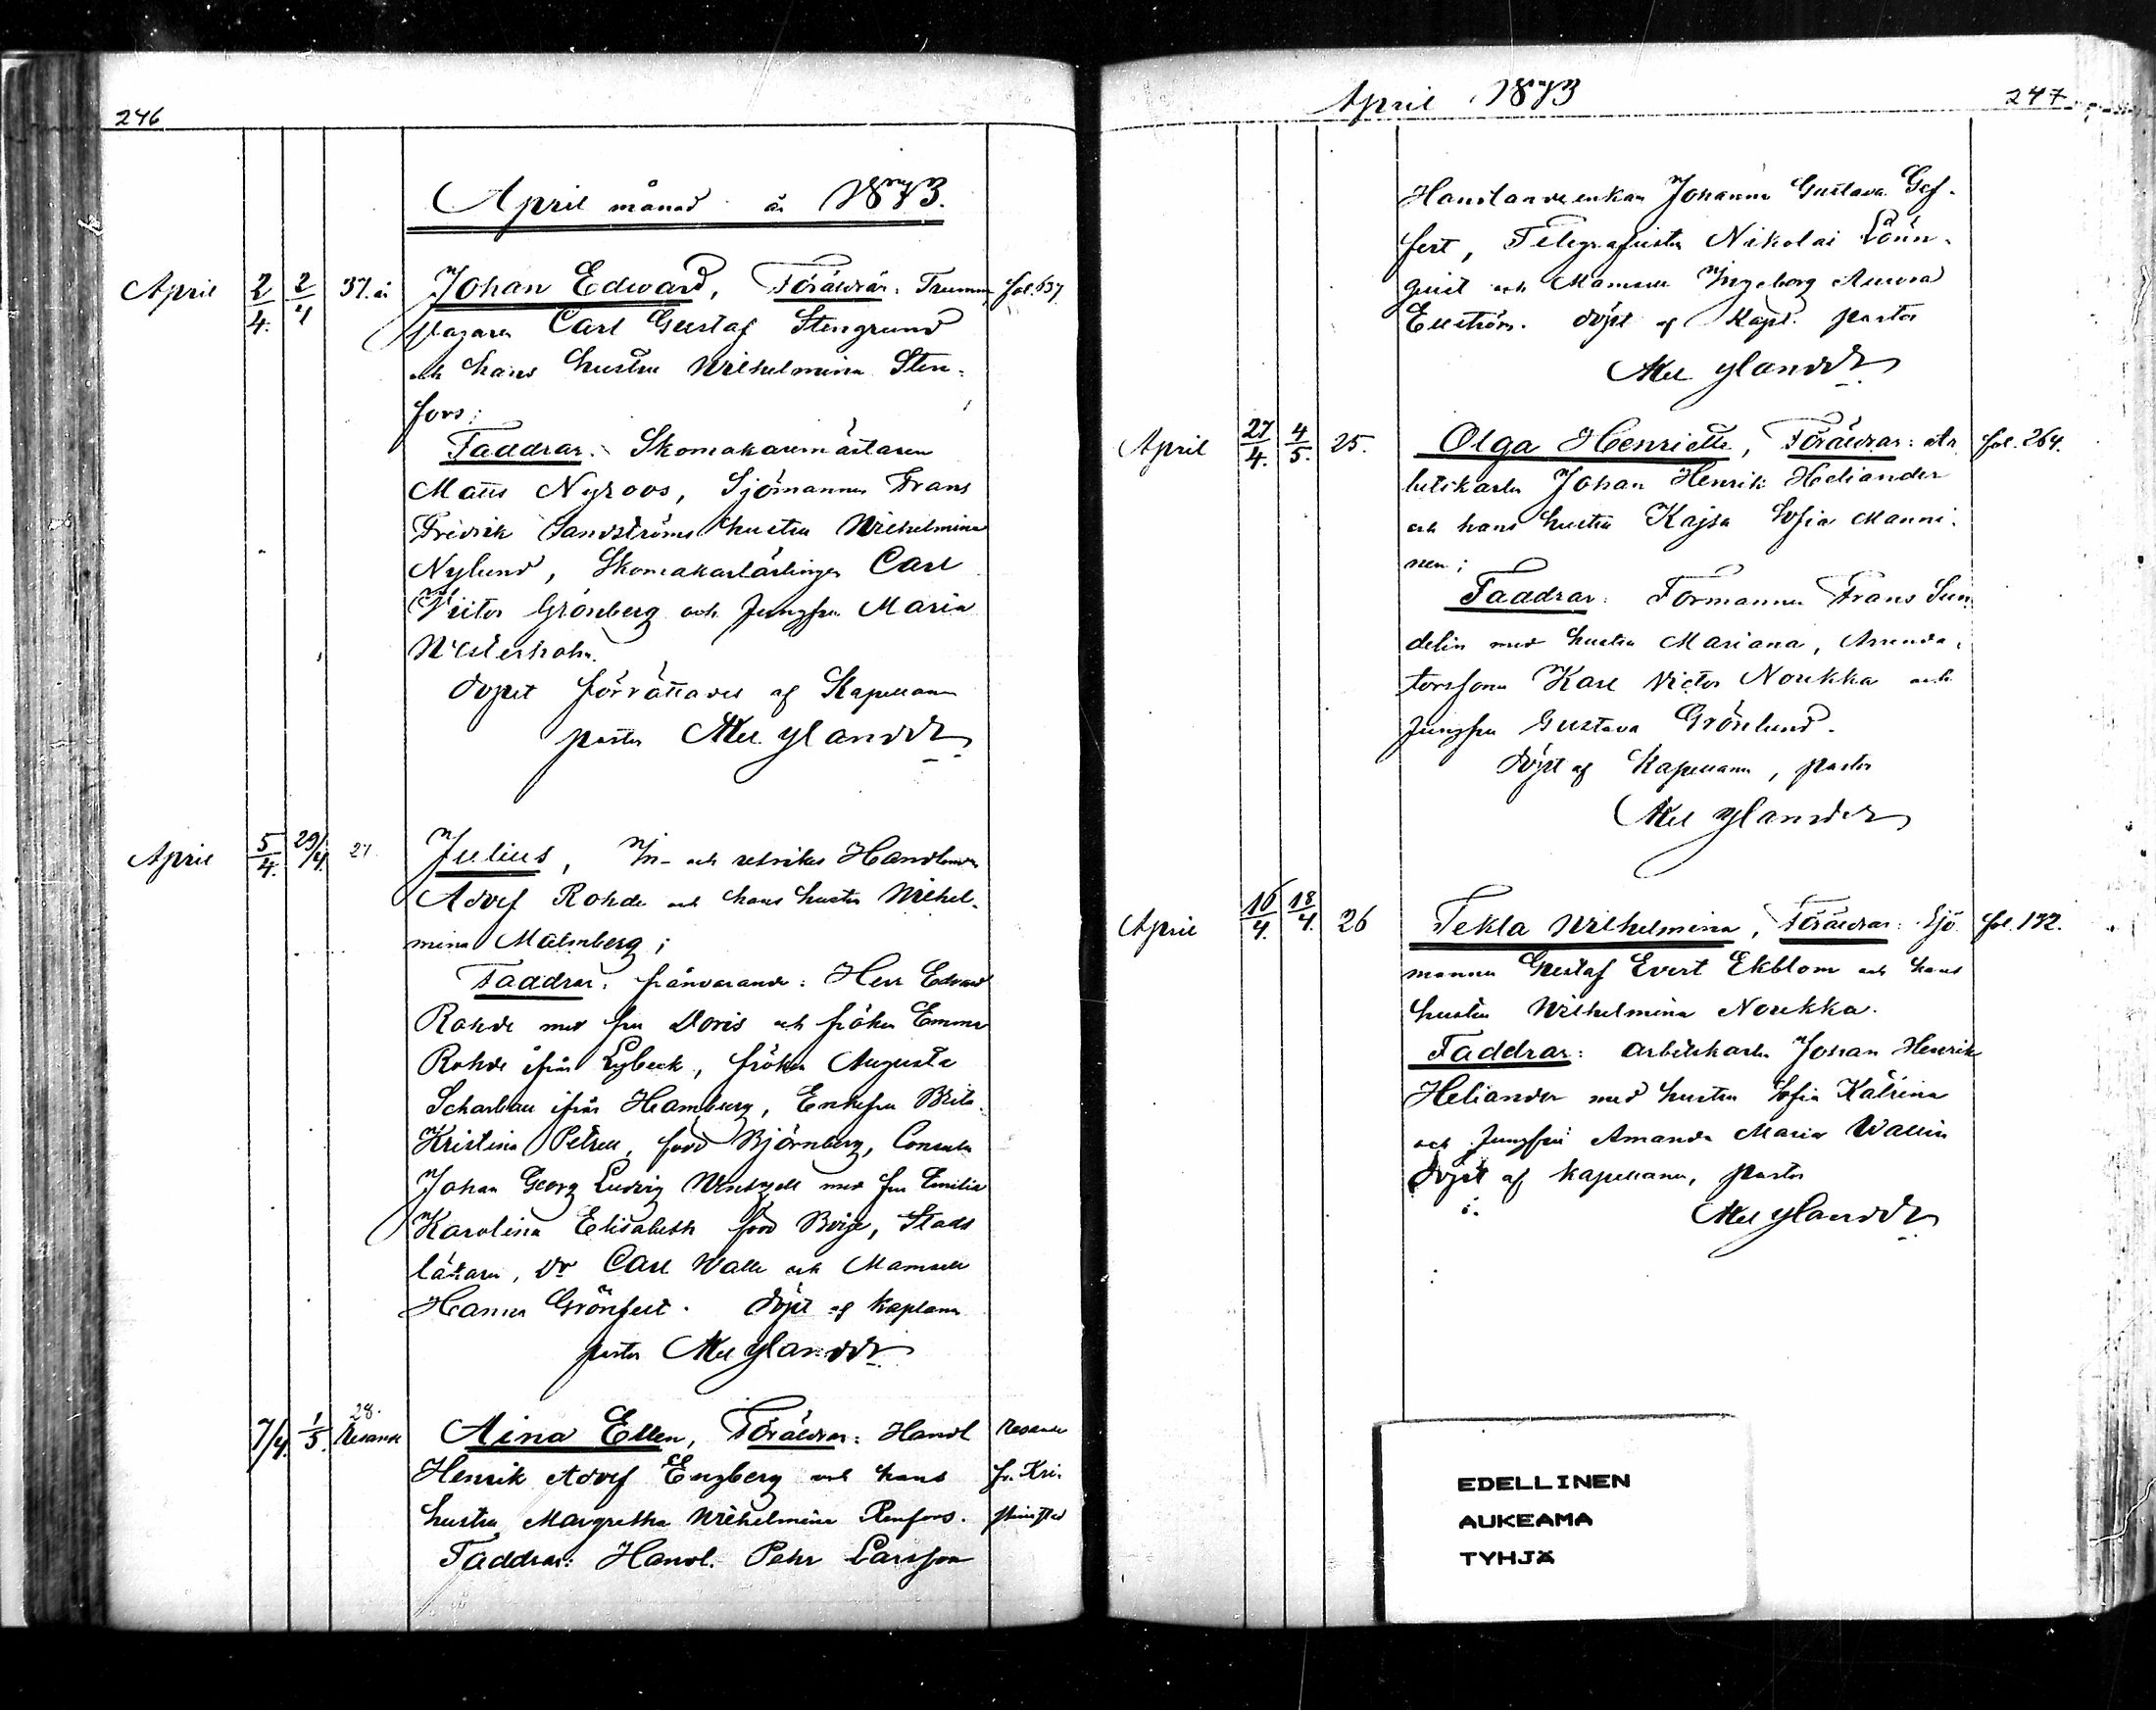 246
April månad år 1873.
April 2/4. 2/4 37. år Johan Edward, Föräldrar: Trumm fol. 637
slagaren Carl Gustaf Stengrund
och hans hustru Wilhelmina Sten-
fors;
Faddrar: Skomakaremästaren
Matts Nyroos, Sjömannen Frans
Fredrik Sandströms hustru Wilhelmina
Nylund, Skomakarlärlingen Carl
Victor Grönberg och Jungfru Maria
Westerholm.
Dopet förrättades af Kapellanen
pastor Mellander
April 5/4. 29/4. 27 Julius, In- och utrikes Handlanden
Adolf Rohde och hans hustru Wilhel-
mina Malmberg;
Faddrar: frånvarande: Herr Edvard
Rohde med fru Doris och fröken Emma
Rohde ifrån Lybeck, fröken Augusta
Scharbau ifrån Hamburg, Enkefru Brita
Kristina Petrell, född Björnberg, Consuln
Johan Georg Ludvig med fru Emilia
Karolina Elisabeth född Boije, Stads
läkaren, Dr Carl Walle och Mamsell
Hanna Grönfelt. Döpt af Kaplanen
pastor Mellander
7/4. 1/5. 28. Resande Aina Ellen, Föräldrar: Handl Resande
Henrik Adolf Engberg och hans fr. Kri-
hustru Margretha Wilhelmina Renfors. stinestad
Faddrar: Handl. Pehr Larsson
April 1873 247
Handlandeenkan Johanna Gustava Gef-
fert, Telegrafisten Nikolai Lönn-
quist och Mamsell Ingeborg Aurora
Ellström. döpt af Kapl. pastor
Mellander
April 27/4. 4/5. 25. Olga Henriette, Föräldrar: Ar fol. 264.
betskarlen Johan Henrik Heliander
och hans hustru Kajsa Sofia Manni-
nen;
Faddrar: Formannen Frans Sun
delin med hustru Mariana, Arrenda-
torssonen Karl Victor Noukka och
Jungfru Gustava Grönlund.
Döpt af Kapellanen, pastor
Mellander
April 10/4. 18/4. 26 Tekla Wilhelmina, Föräldrar: Sjö fol. 192.
mannen Gustaf Evert Ekblom och hans
hustru Wilhelmina Noukka.
Faddrar: arbetskarlen Johan Henrik
Heliander med hustru Sofia Katrina
och Jungfru Amanda Maria Wallin
Döpt af kapellanen, pastor
Mellander
EDELLINEN
AUKEAMA
TYHJÄ